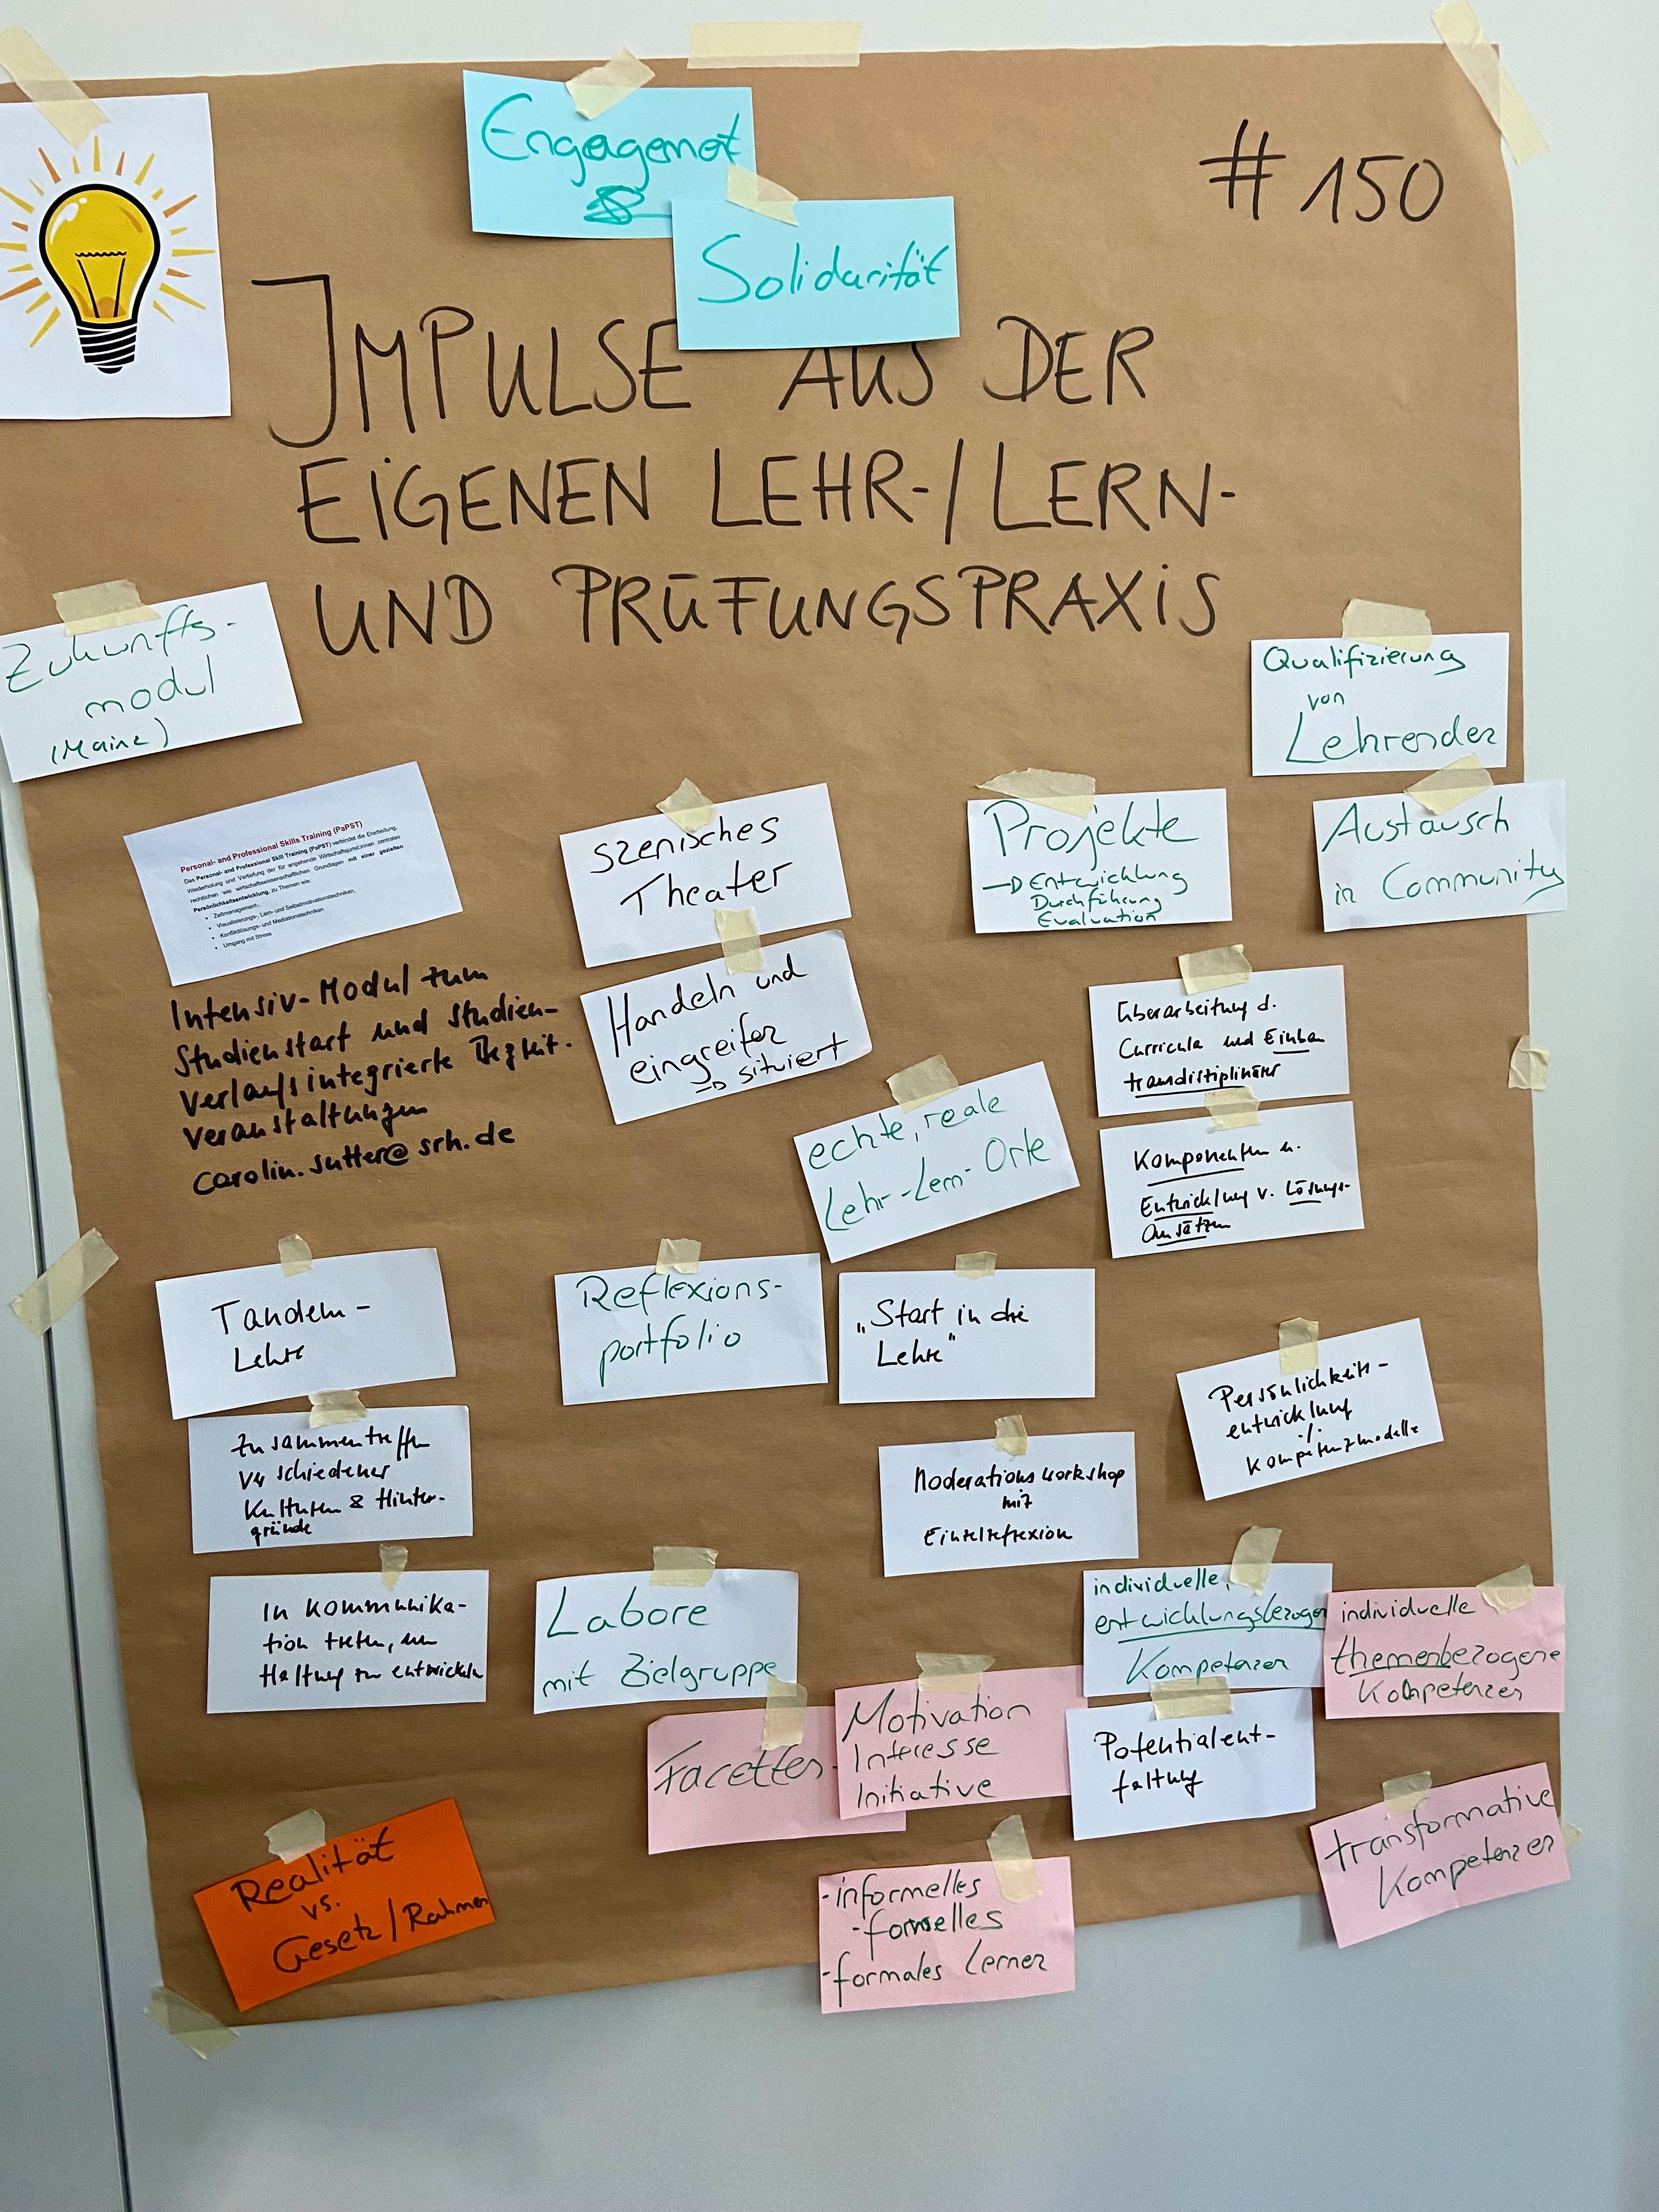 Engagemet
Solidarität
# 150
IMPULSE AUS DER
EIGENEN LEHR-/LERN-
UND PRÜFUNGSPRAXIS
Zukunfts-
modul
(Mainz)
Qualifizierung
von
Lehrenden
Personal- and Professional Skills Training (PaPST)
Das Personal- and Professional Skill Training (PaPST) verbindet die Erarbeitung,
Wiederholung und Vertiefung der für angehende Wirtschaftsjurist:innen zentralen
rechtlichen wie wirtschaftswissenschaftlichen Grundlagen mit einer gezielten
Persönlichkeitsentwicklung, zu Themen wie:
• Zeitmanagement,
• Visualisierungs-, Lern- und Selbstmotivationstechniken,
• Konfliktlösungs- und Mediationstechniken
• Umgang mit Stress
Intensiv-Modul zum
Studienstart und studien-
verlaufsintegrierte Begleit-
veranstaltungen
carolin.sutter@srh.de
szenisches
Theater
Handeln und
eingreifen
→ situiert
Projekte
→ Entwicklung
Durchführung
Evaluation
Austausch
in Community
Überarbeitung d.
Curricula und Einbau
transdisziplinärer
Komponenten u.
Entwicklung v. Lösungs-
ansätzen
echte, reale
Lehr-Lern-Orte
Tandem-
Lehre
Reflexions-
portfolio
„Start in die
Lehre"
Zusammentreffen
verschiedener
Kulturen & Hinter-
gründe
Moderationsworkshop
mit
Einzelreflexion
Persönlichkeits-
entwicklung
./.
Kompetenzmodelle
In Kommunika-
tion treten, um
Haltung zu entwickeln
Labore
mit Zielgruppe
individuelle,
entwicklungsbezogen
Kompetenzen
individuelle
themenbezogene
Kompetenzen
Facetten
Motivation
Interesse
Initiative
Potentialent-
faltung
transformative
Kompetenzen
Realität
vs.
Gesetz/Rahmen
-informelles
-formelles
-formales Lernen